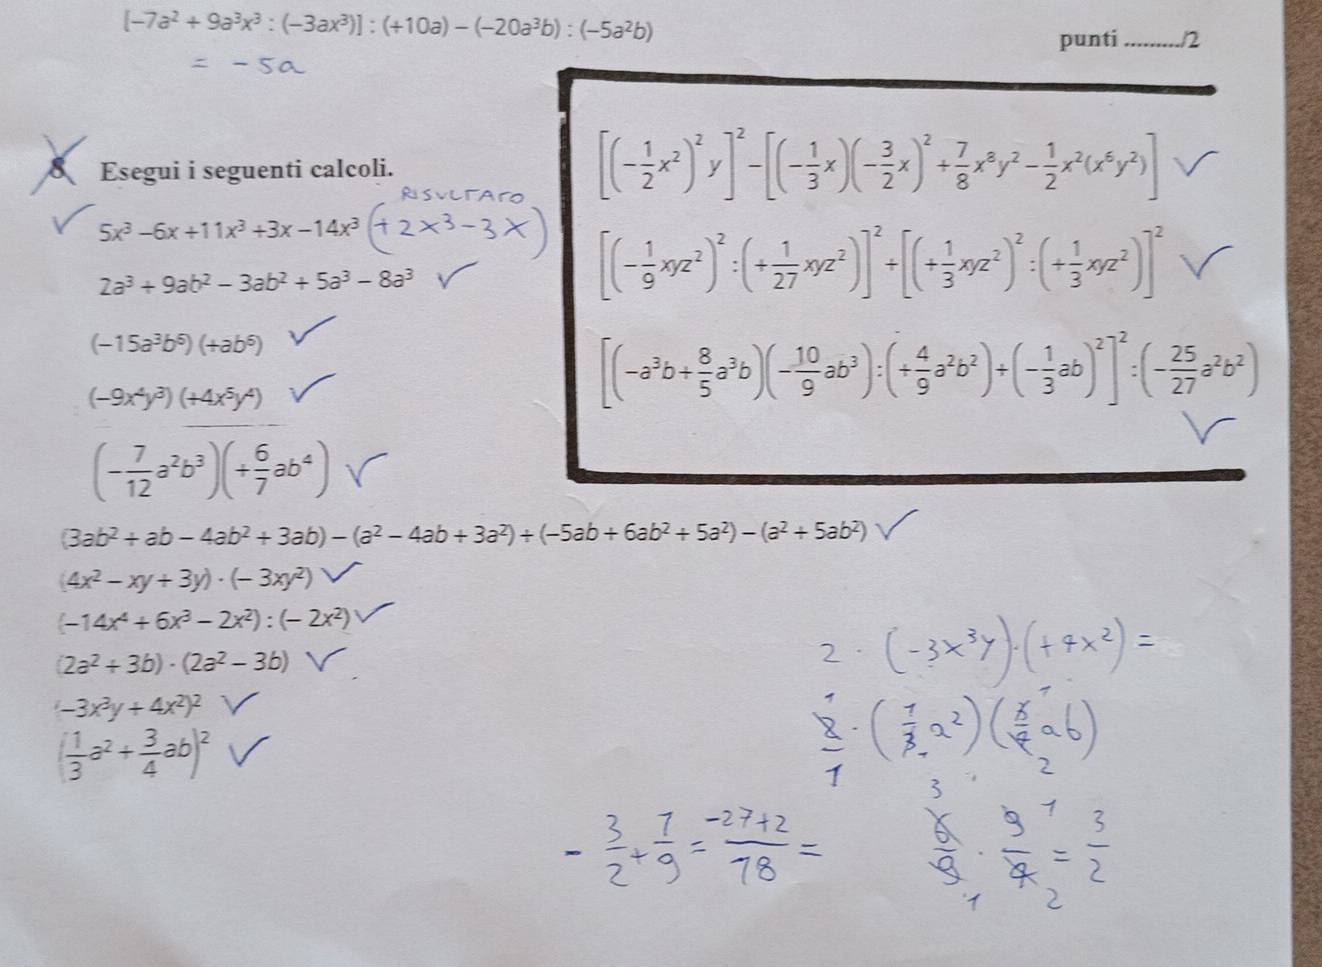 [−7a² + 9a³x³ : (−3ax³)] : (+10a) − (−20a³b) : (−5a²b)
punti ........./2
= -5a
8 Esegui i seguenti calcoli.
RISULTATO
5x³ −6x +11x³ +3x −14x³ (+2x³-3x)
2a³ + 9ab² − 3ab² + 5a³ − 8a³
(−15a³b⁵) (+ab⁶)
(−9x⁴y³) (+4x⁵y⁴)
(−7/12 a²b³)(+6/7 ab⁴)
[(−1/2 x²)² y]² − [(−1/3 x)(−3/2 x)² + 7/8 x⁸y² − 1/2 x²(x⁶y²)]
[(−1/9 xyz²)² : (+1/27 xyz²)]² + [(+1/3 xyz²)² : (+1/3 xyz²)]²
[(−a³b + 8/5 a³b)(−10/9 ab³) : (+4/9 a²b²) + (−1/3 ab)²]² : (−25/27 a²b²)
(3ab² + ab − 4ab² + 3ab) − (a² − 4ab + 3a²) + (−5ab + 6ab² + 5a²) − (a² + 5ab²)
(4x² − xy + 3y) · (− 3xy²)
(−14x⁴ + 6x³ − 2x²) : (− 2x²)
(2a² + 3b) · (2a² − 3b)
(−3x³y + 4x²)²
(1/3 a² + 3/4 ab)²
2 · (-3x³y)·(+4x²) =
2/1 · (1/3 a²)(3/4 ab)
1 1 1 2
-3/2 + 1/9 = -27+2/18 =
6/9 · 9/4 = 3/2
3 1 1 2